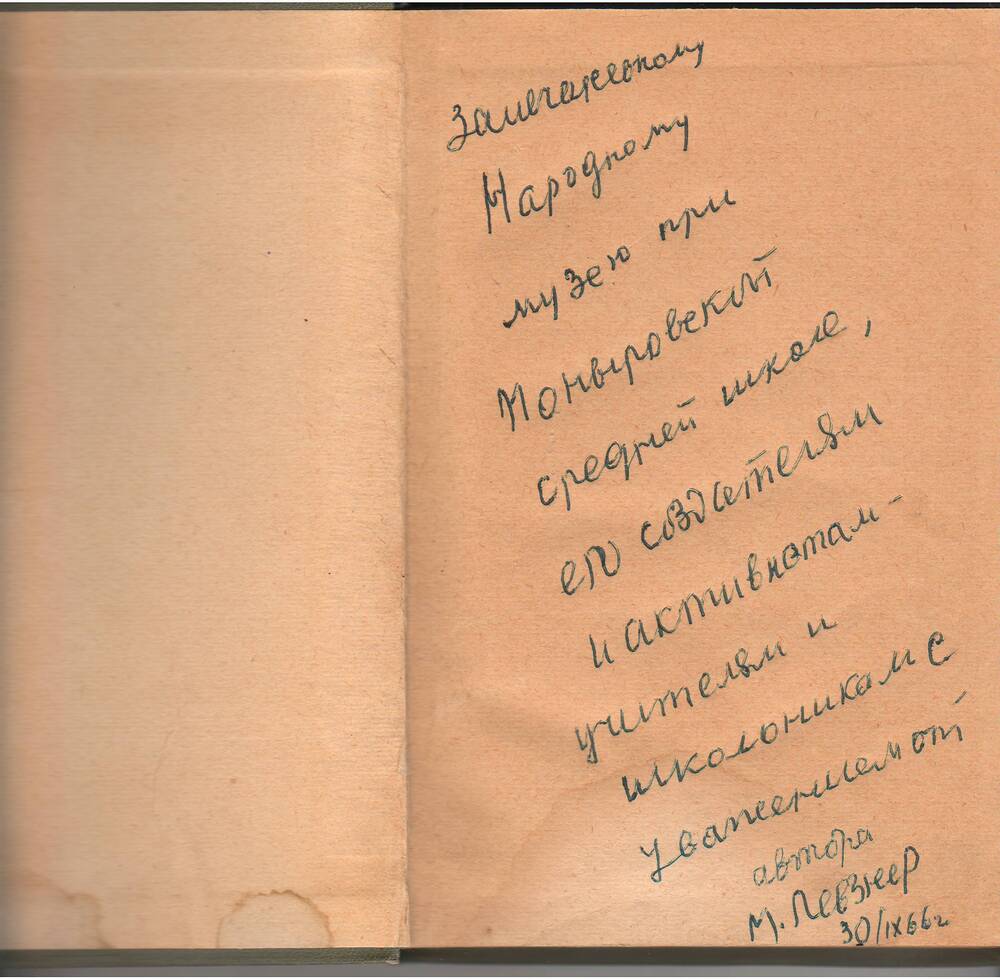 Замечательному
Народному
музею при
Моныровской
средней школе,
его создателям
и активистам-
учителям и
школьникам с
уважением от
автора
М. Левзнер
30/IX 66 г.